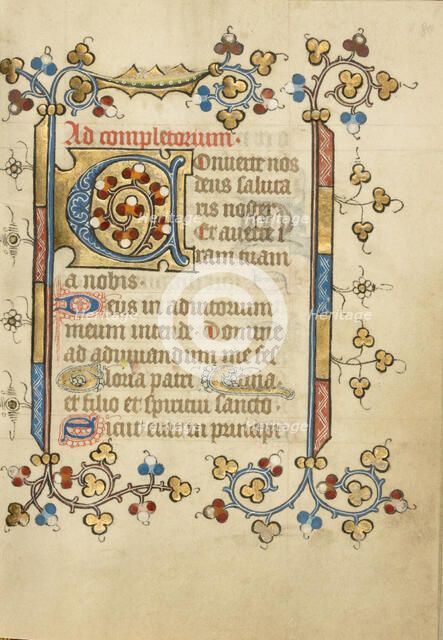 Ad completorium.
Conuerte nos
deus saluta
ris noster
Et auerte i
ram tuam
a nobis.
Deus in adiutorium
meum intende Domine
ad adiuuandum me fes
Gloria patri
et filio et spiritui sancto.
Sicut erat in principi
Heritage
Heritage
Heritage
Heritage